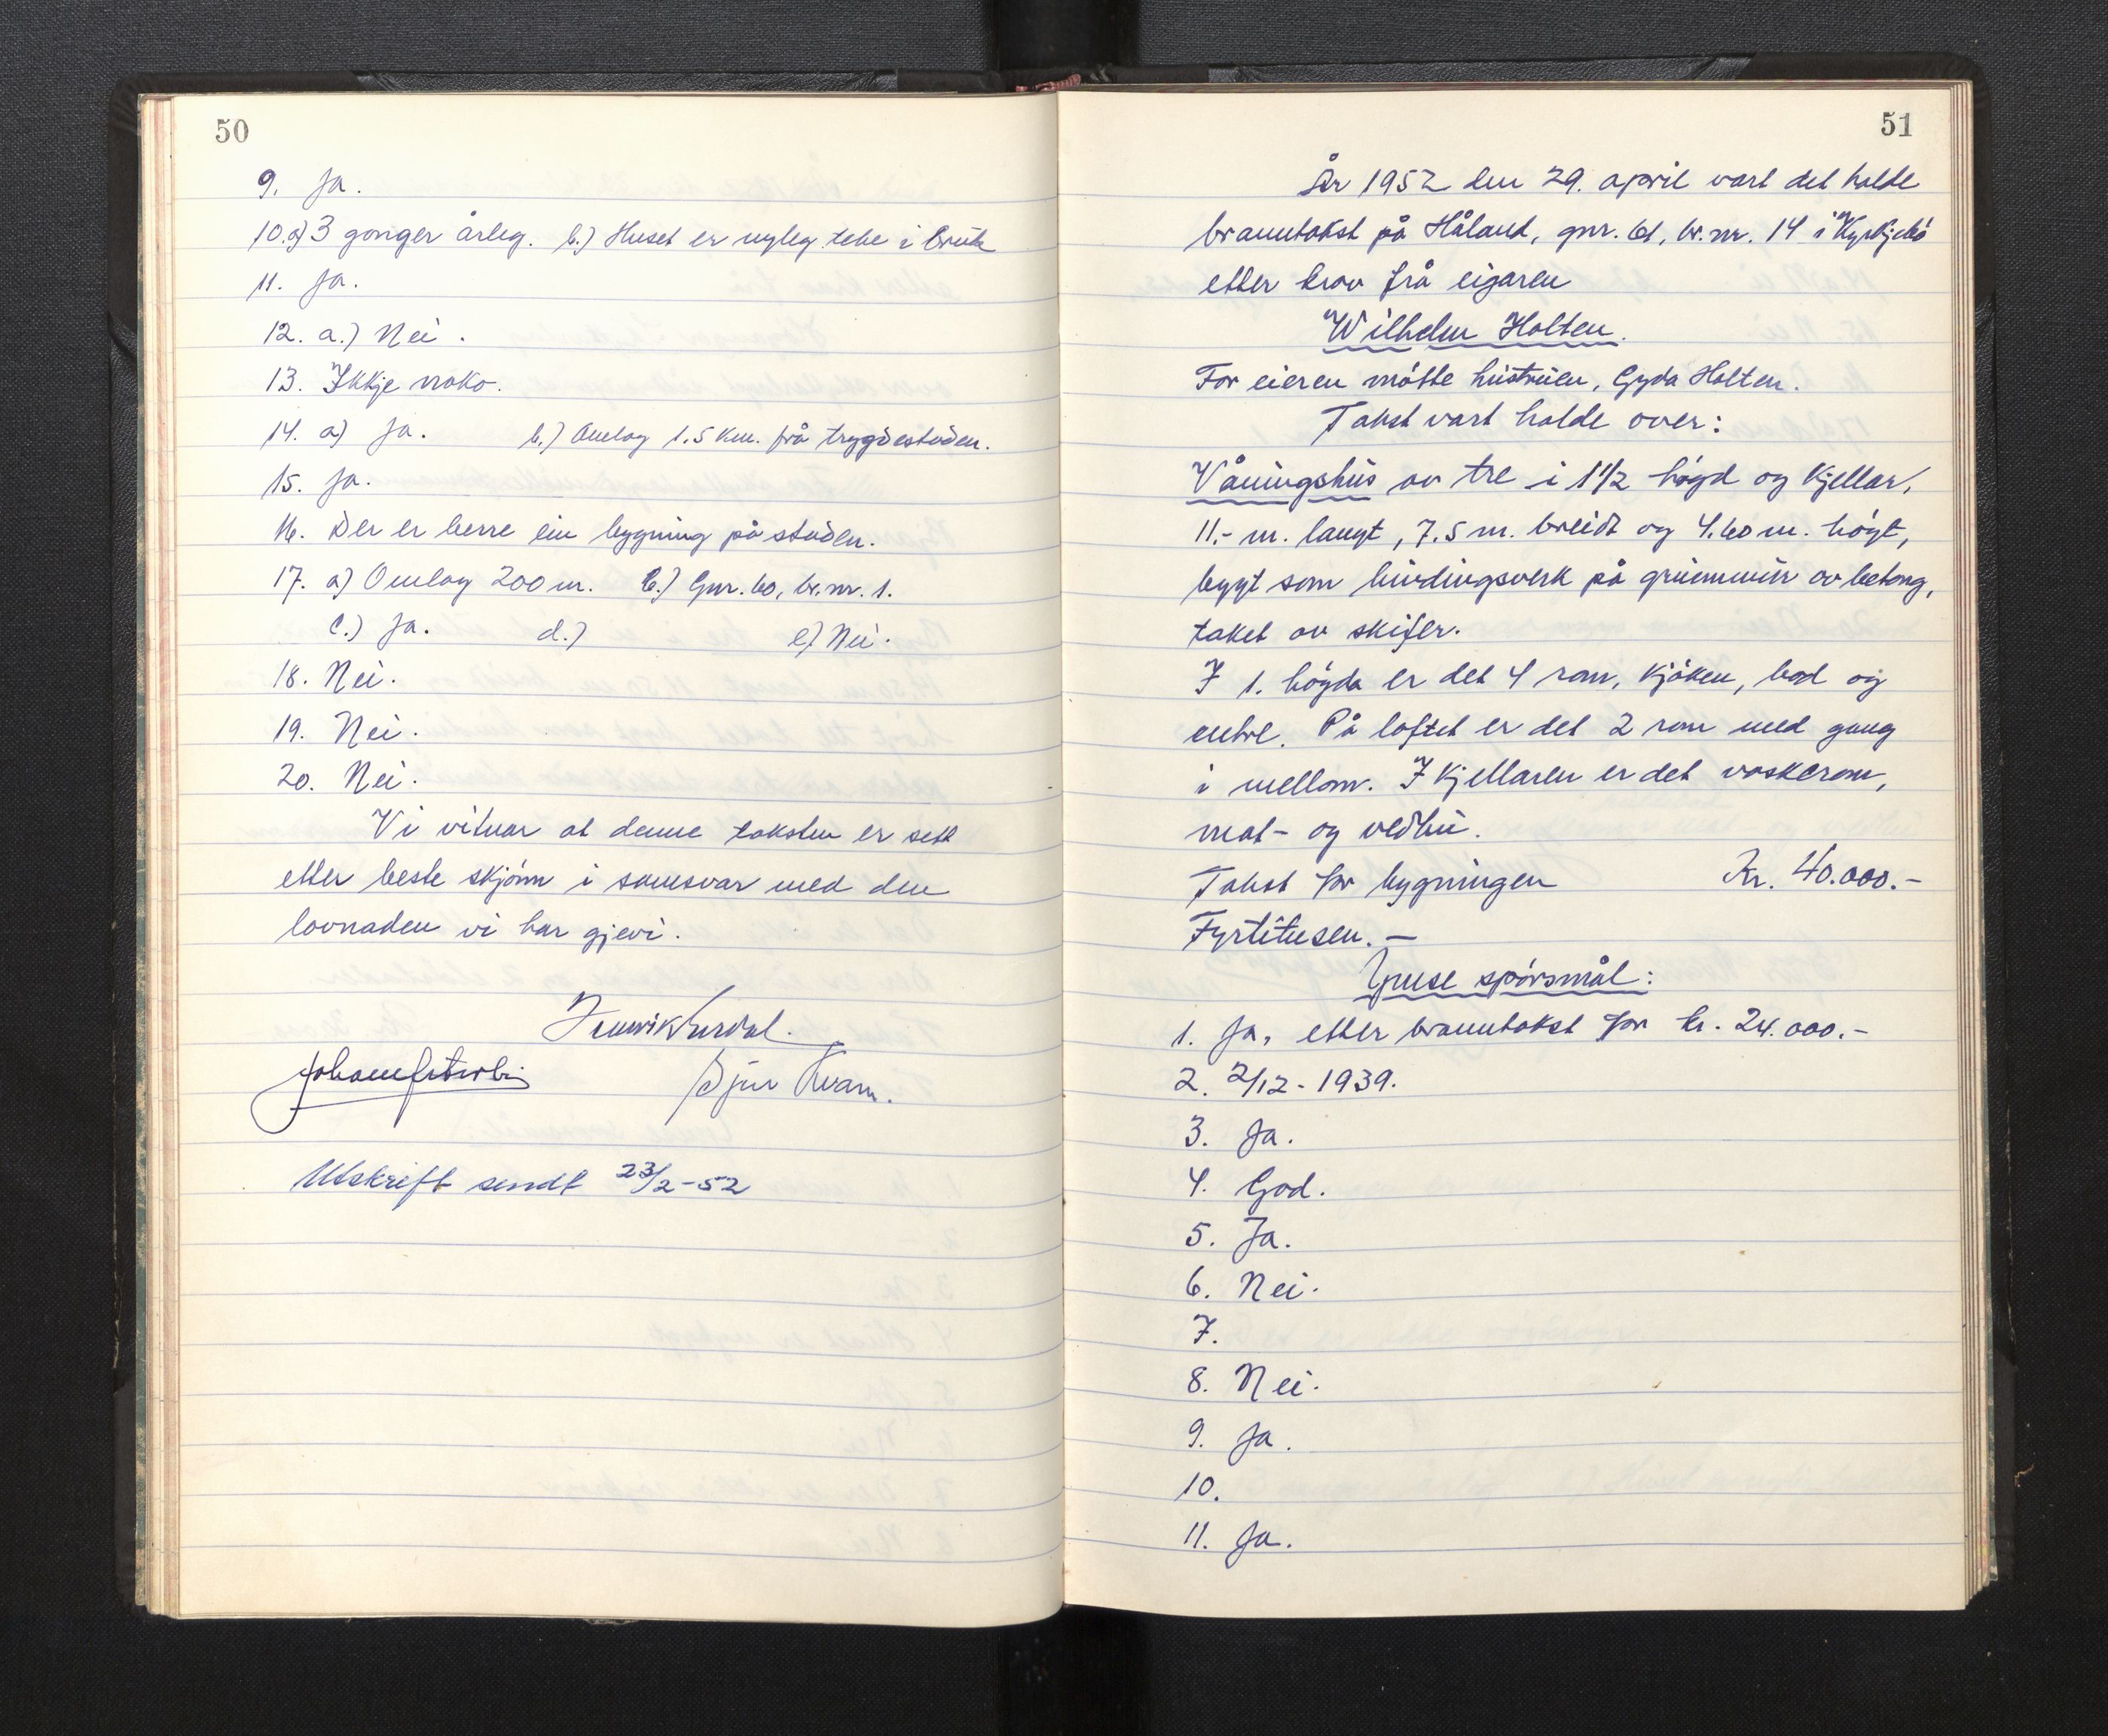 50
9. Ja.
10.a) 3 gonger årleg. b.) Huset er nyleg teke i bruk
11. Ja.
12. a.) Nei.
13. Ikkje noko.
14. a) Ja. b.) Omlag 1.5 km. frå trygdestaden.
15. Ja.
16. Der er berre ein bygning på staden.
17. a) Omlag 200 m. b.) Gnr. 60, br.nr. 1.
c.) Ja. d.) e) Nei.
18. Nei.
19. Nei.
20. Nei.
Vi vitnar at denne taksten er sett
etter beste skjönn i samsvar med den
lovnaden vi har gjevi.
Kvam.
Utskrift sendt 23/2-52
51
År 1952 den 29. april vart det halde
branntakst på Håland, gnr. 61, br.nr. 14 i Kyrkjebö
etter krav frå eigaren
Wilhelm Holten.
For eieren mötte hustruen, Gyda Holten.
Takst vart halde over:
Våningshus av tre i 1 1/2 högd og kjellar,
11.- m. langt, 7.5 m. breidt og 4.60 m. högt,
bygt som bindingsverk på grunnmur av betong,
taket av skifer.
I 1. högda er det 4 rom, kjöken, bad og
entre. På loftet er det 2 rom med gang
i mellom. I kjellaren er det vaskerom,
mat- og vedbu.
Takst for bygningen Kr. 40.000.-
Fyrtitusen. —
Ymse spörsmål:
1. Ja, etter branntakst for kr. 24.000.-
2. 2/12 - 1939.
3. Ja.
4. God.
5. Ja.
6. Nei.
7.
8. Nei.
9. Ja.
10.
11. Ja.